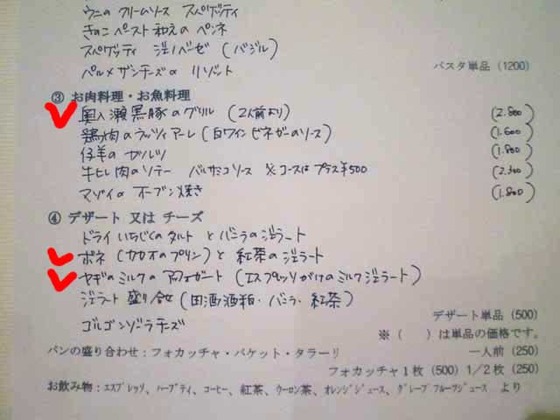 ウニの クリームソース スパゲッティ
きのこペースト和えの ペンネ
スパゲッティ ジェノベーゼ (バジル)
パルメザンチーズの リゾット
パスタ単品 (1200)
③ お肉料理・お魚料理
奥入瀬黒豚のグリル (2人前より) (2.800)
鶏肉のカッチャトーレ (白ワインビネガーのソース) (1.600)
仔羊の (1.800)
牛ヒレ肉のソテー バルサミコソース ※コースは プラス¥500 (2.300)
マゾイの オーブン焼き (1.800)
④ デザート 又は チーズ
ドライ いちじくのタルト と バニラのジェラート
ボネ (カカオのプリン) と 紅茶の ジェラート
ヤギのミルクの アフォガート (エスプレッソがけのミルクジェラート)
ジェラート 盛り合せ (田酒酒粕・バニラ・紅茶)
ゴルゴンゾーラチーズ
デザート単品 (500)
※ ( ) は単品の価格です。
パンの盛り合わせ:フォカッチャ・バケット・タラーリ 一人前 (250)
フォカッチャ1枚 (500) 1/2枚 (250)
お飲み物:エスプレッソ、ハーブティ、コーヒー、紅茶、ウーロン茶、オレンジジュース、グレープフルーツジュース より